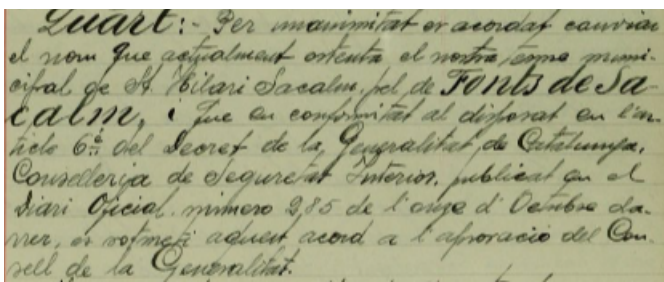 Quart:- Per unanimitat es acordat canviar
el nom que actualment ostenta el nostre terme muni-
cipal de St. Hilari Sacalm, pel de Fonts de Sa-
calm, i que en conformitat al disposat en l'ar-
ticle 6è del Decret de la Generalitat de Catalunya,
Conselleria de Seguretat Interior, publicat en el
Diari Oficial número 285 de l'onze d'Octubre da-
rrer, es sotmeti aquest acord a l'aprovació del Con-
sell de la Generalitat.